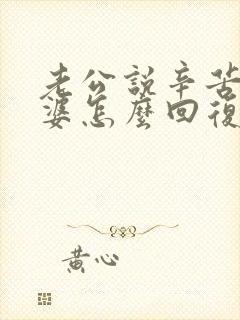 老公說辛苦
婆怎麼回復
黃心